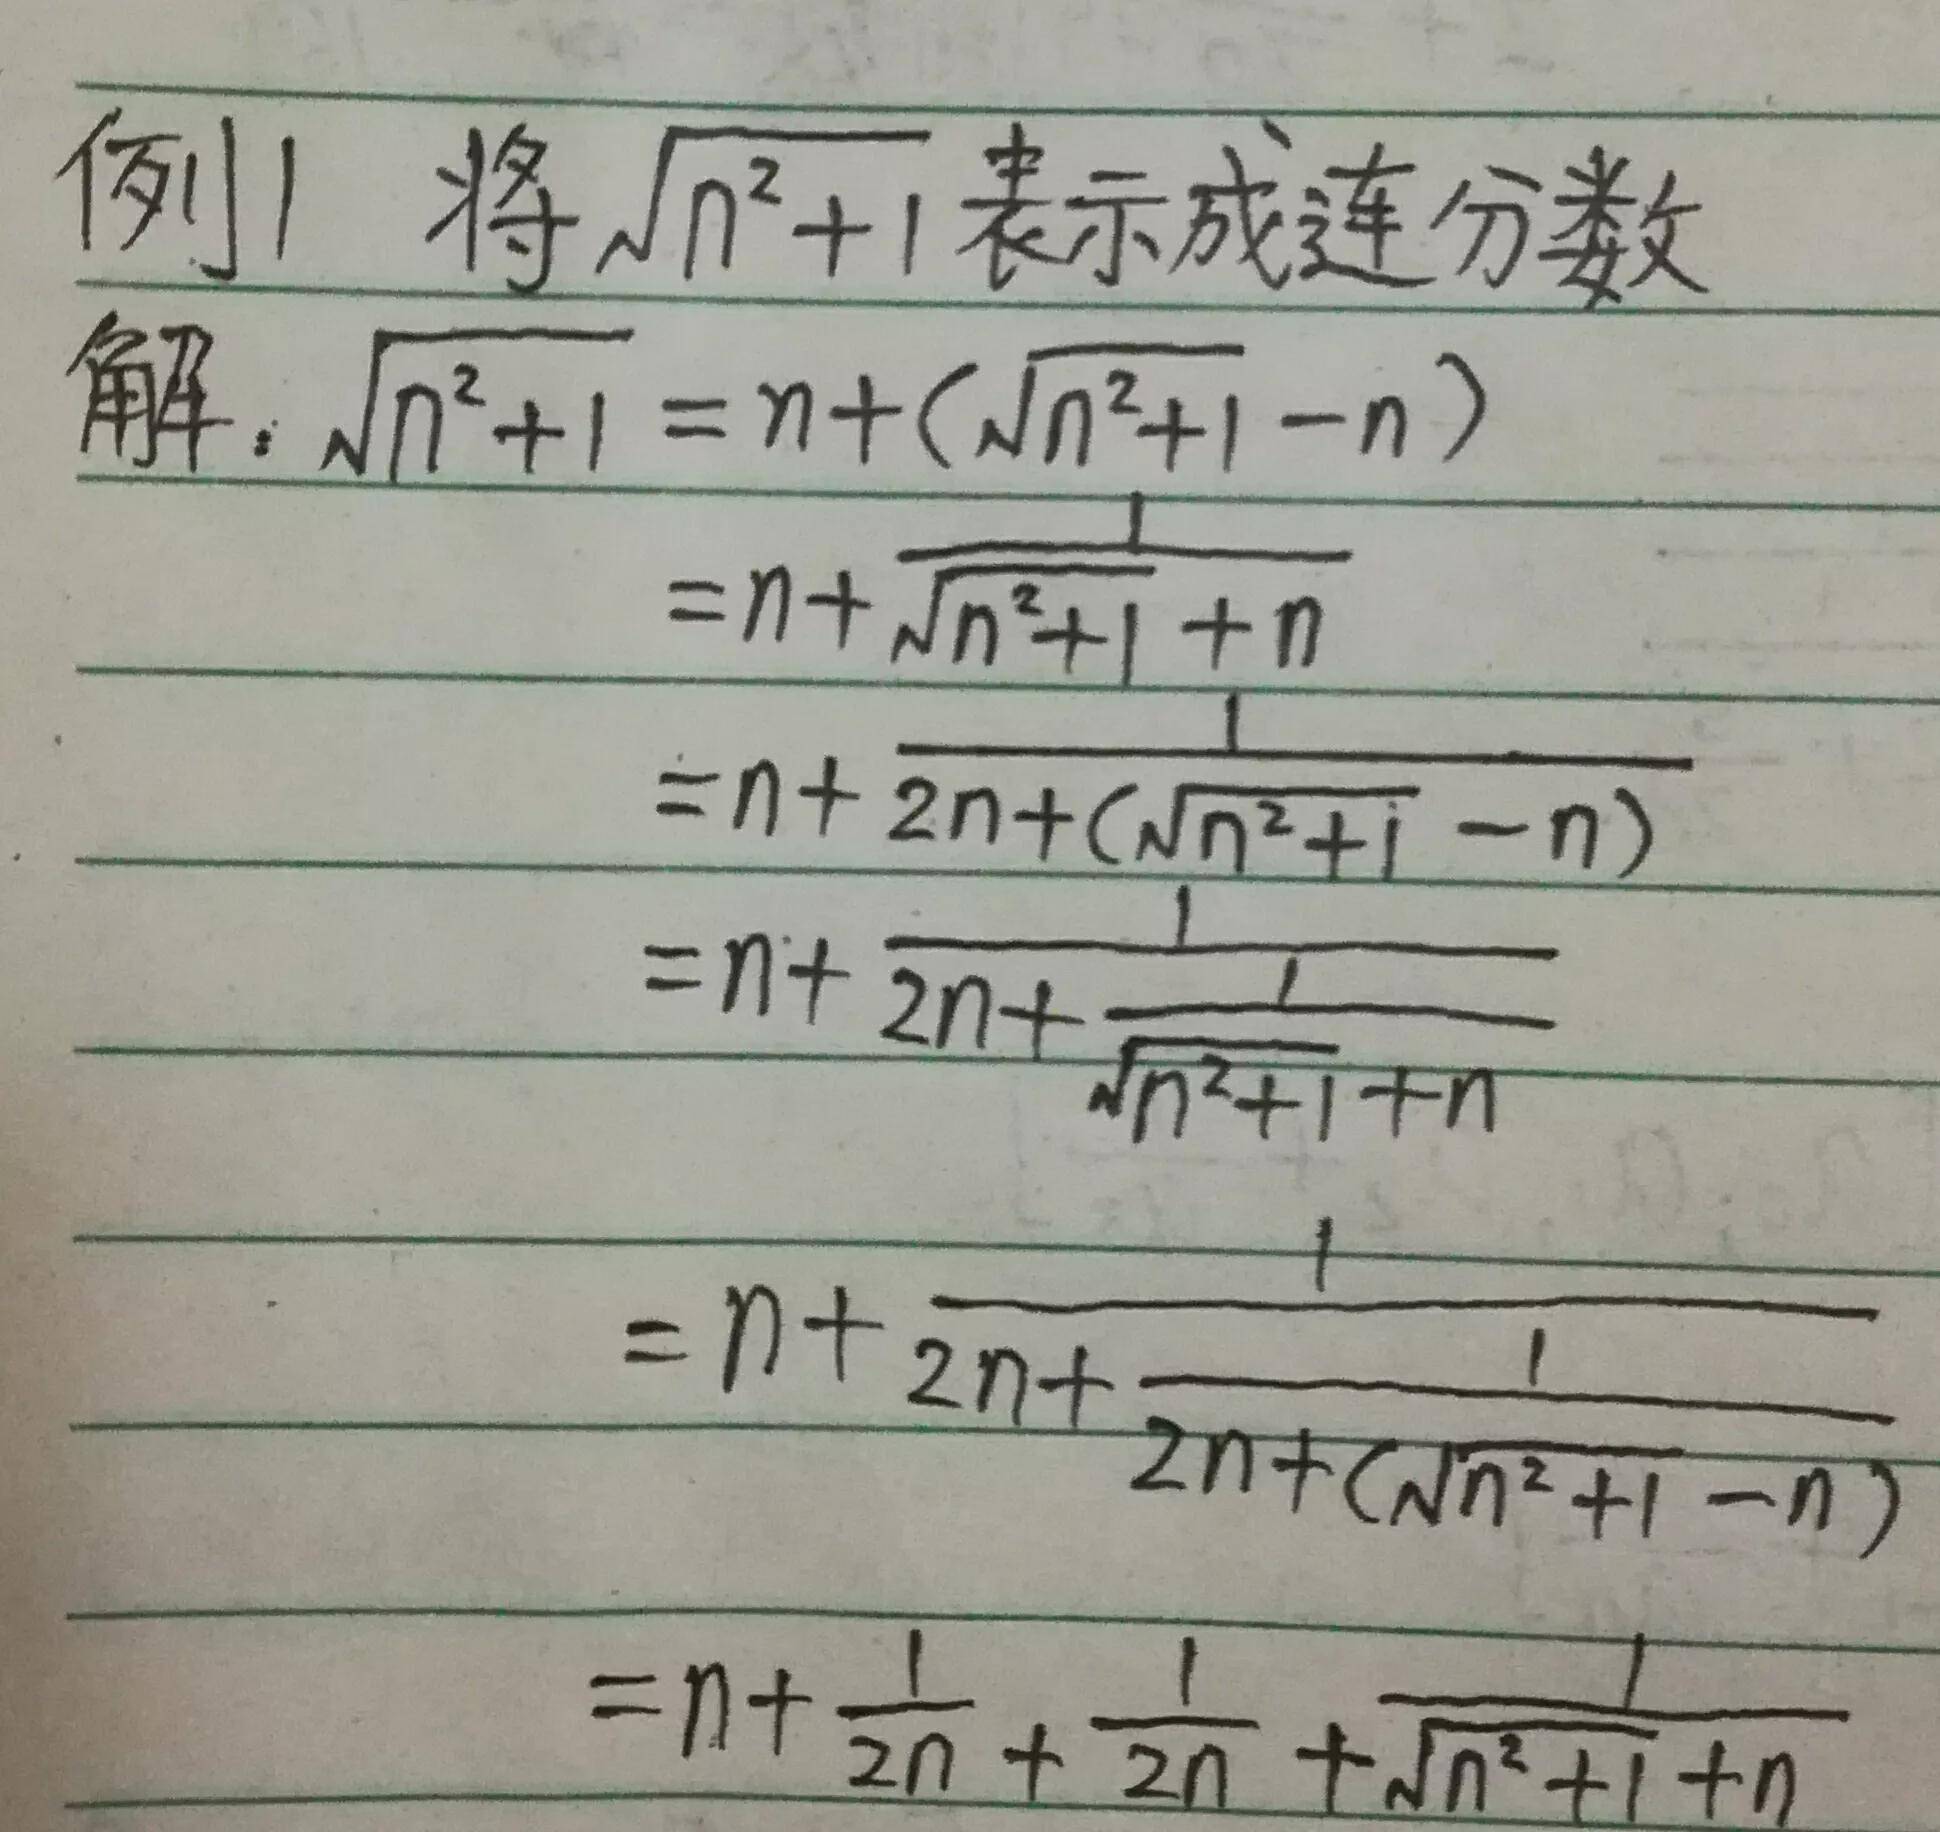 例1 将√(n²+1)表示成连分数
解: √(n²+1) = n+(√(n²+1) -n)
= n+ 1/(√(n²+1) + n)
= n+ 1/(2n+(√(n²+1) - n))
= n+ 1/(2n+ 1/(√(n²+1) + n))
= n+ 1/(2n+ 1/(2n+(√(n²+1) - n)))
= n+ 1/2n + 1/2n + 1/(√(n²+1) + n)